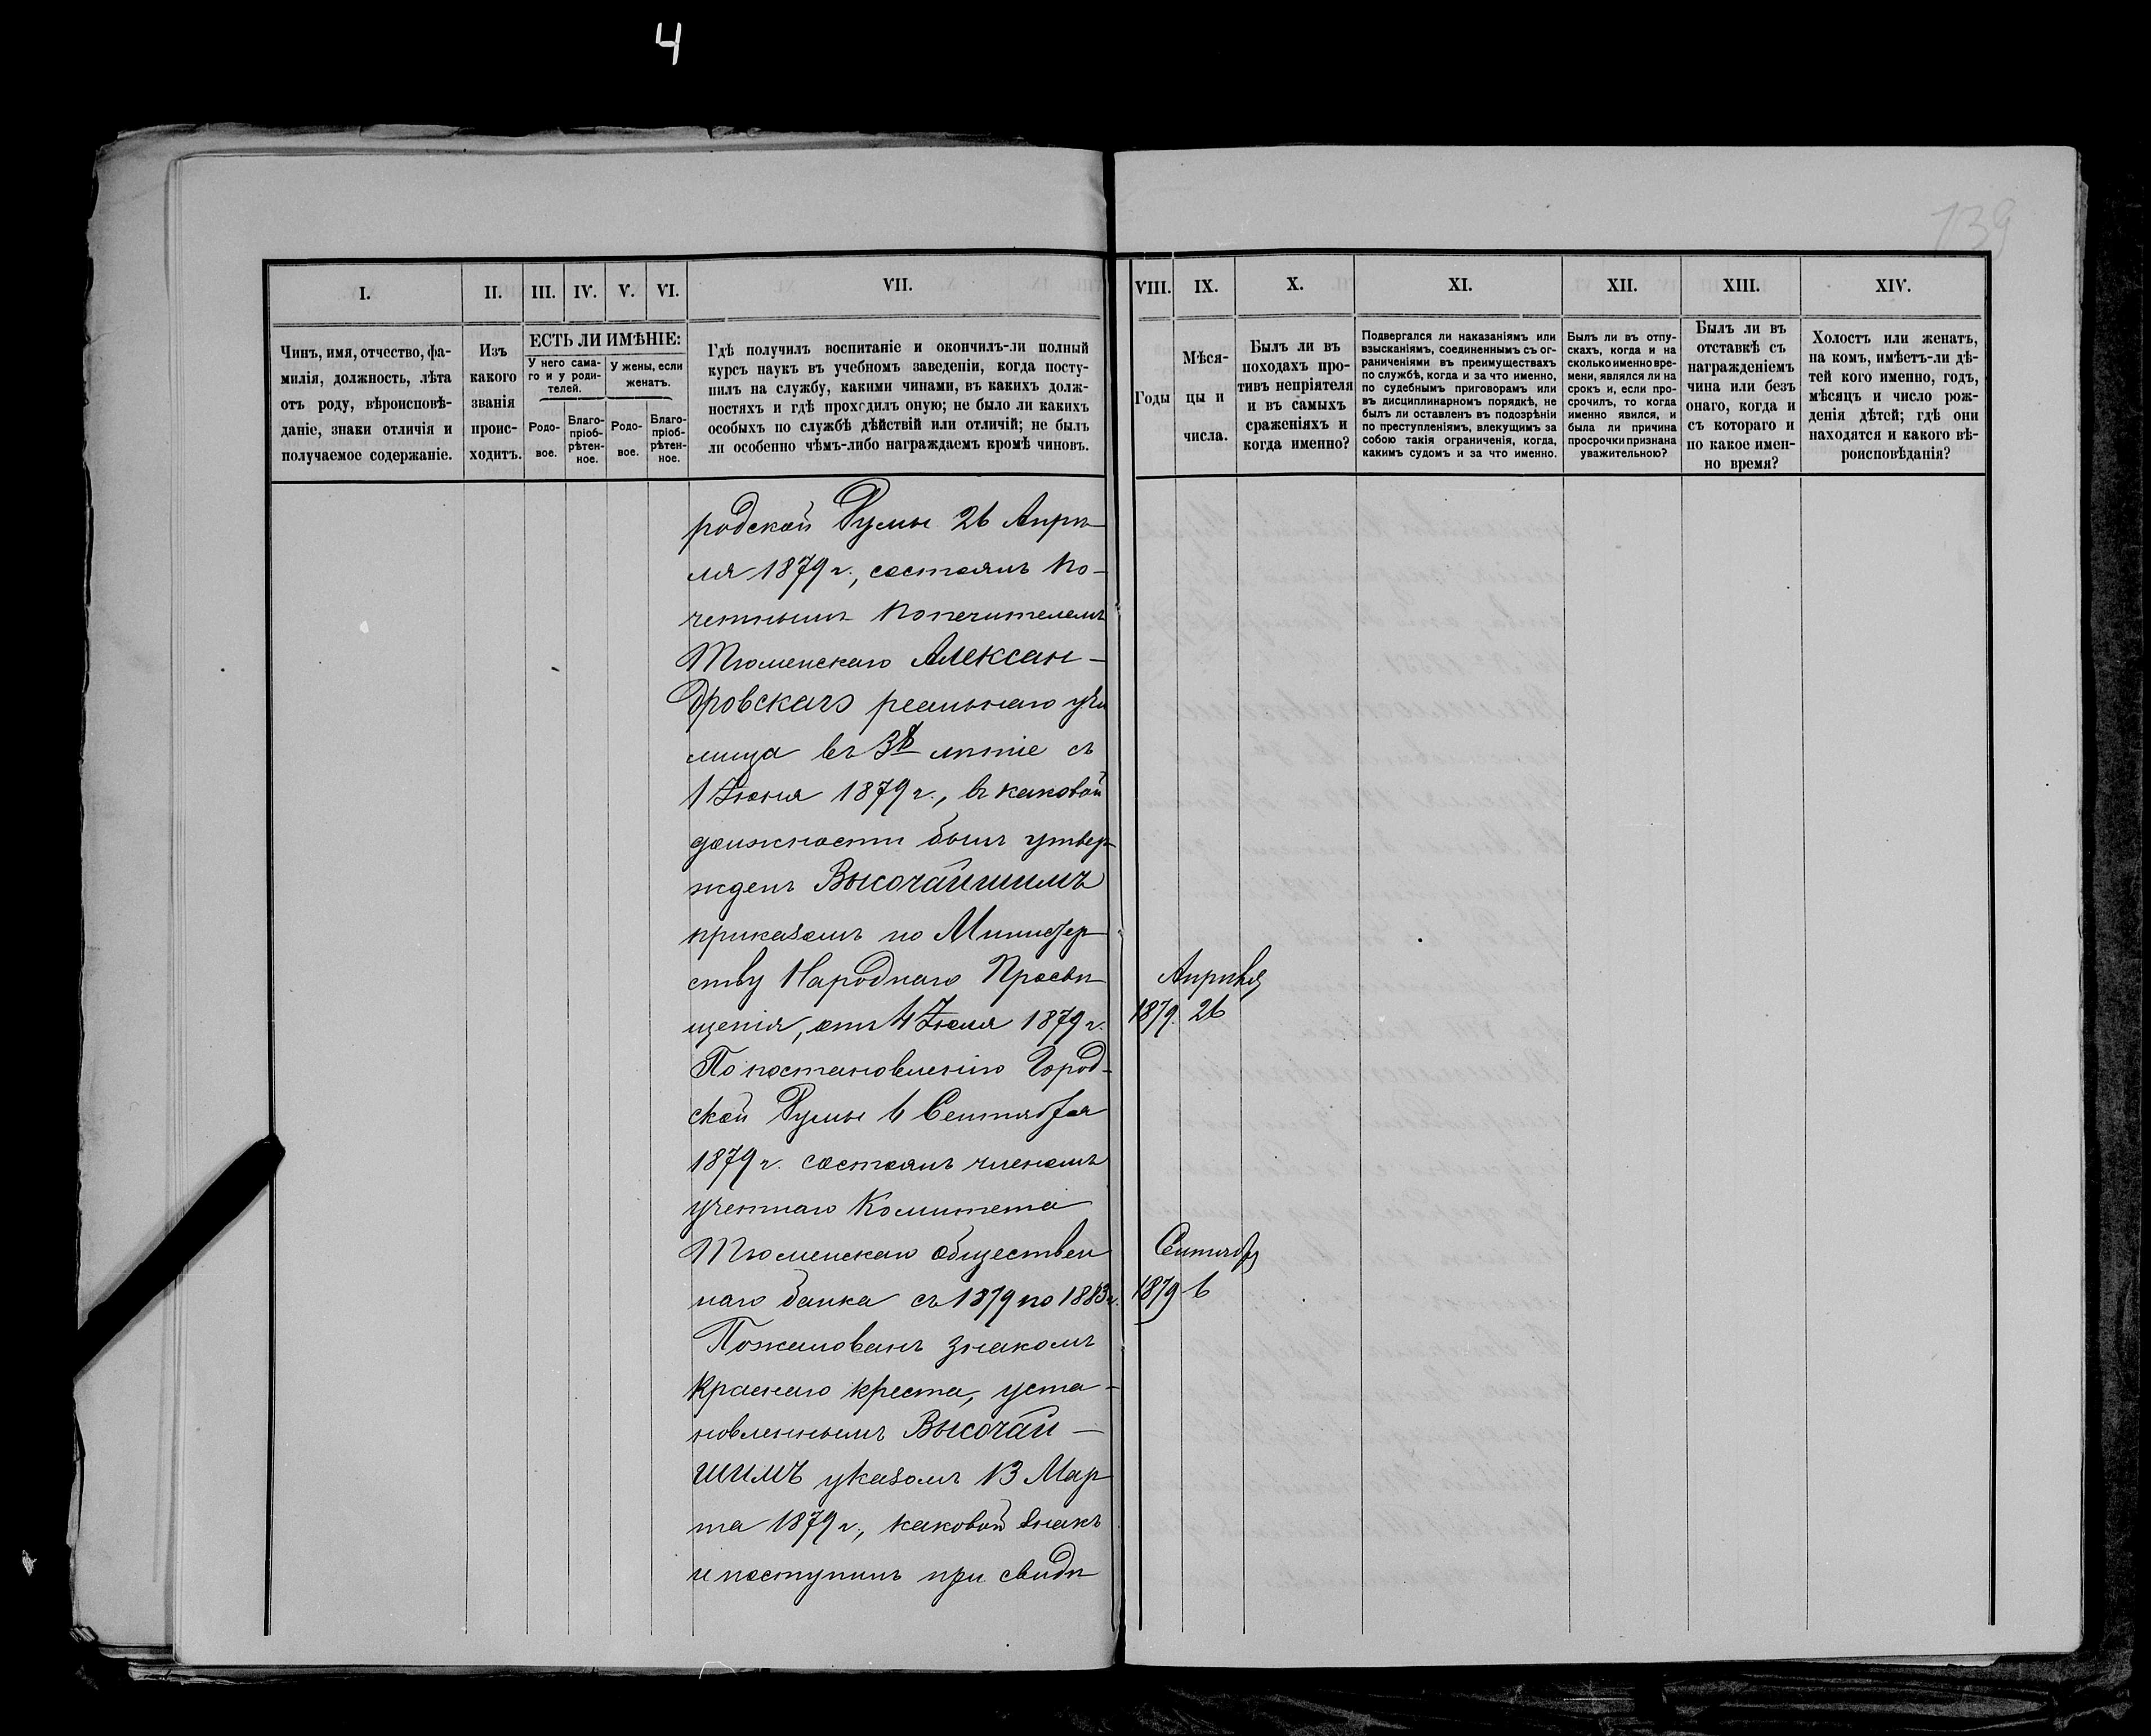 4
139
I.
II.
III.
IV.
V.
VI.
VII.
VIII.
IX.
X.
XI.
XII.
XIII.
XIV.
Чинъ, имя, отчество, фа-
милія, должность, лѣта
отъ роду, вѣроисповѣ-
даніе, знаки отличія и
получаемое содержаніе.
Изъ
какого
званія
проис-
ходитъ.
ЕСТЬ ЛИ ИМѢНІЕ:
У него сама-
го и у роди-
телей.
У жены, если
женатъ.
Родо-
вое.
Благо-
пріоб-
рѣтен-
ное.
Родо-
вое.
Благо-
пріоб-
рѣтен-
ное.
Гдѣ получилъ воспитаніе и окончилъ-ли полный
курсъ наукъ въ учебномъ заведеніи, когда посту-
пилъ на службу, какими чинами, въ какихъ долж-
ностяхъ и гдѣ проходилъ оную; не было ли какихъ
особыхъ по службѣ дѣйствій или отличій; не былъ
ли особенно чѣмъ-либо награждаемъ кромѣ чиновъ.
Годы
Мѣся-
цы и
числа.
Былъ ли въ
походахъ про-
тивъ непріятеля
и въ самыхъ
сраженіяхъ и
когда именно?
Подвергался ли наказаніямъ или
взысканіямъ, соединеннымъ съ ог-
раниченіями въ преимуществахъ
по службѣ, когда и за что именно,
по судебнымъ приговорамъ или
въ дисциплинарномъ порядкѣ, не
былъ ли оставленъ въ подозрѣніи
по преступленіямъ, влекущимъ за
собою такія ограниченія, когда,
какимъ судомъ и за что именно.
Былъ ли въ отпу-
скахъ, когда и на
сколько именно вре-
мени, являлся ли на
срокъ и, если про-
срочилъ, то когда
именно явился, и
была ли причина
просрочки признана
уважительною?
Былъ ли въ
отставкѣ съ
награжденіемъ
чина или безъ
онаго, когда и
съ котораго и
по какое имен-
но время?
Холостъ или женатъ,
на комъ, имѣетъ-ли дѣ-
тей кого именно, годъ,
мѣсяцъ и число рож-
денія дѣтей; гдѣ они
находятся и какого вѣ-
роисповѣданія?
родской Думы 26 Апрѣ
ля 1879 г., состоялъ по-
четнымъ попечителемъ
Тюменскаго Алексан-
дровскаго реальнаго учи
лища въ 3хъ лѣтіе съ
1 Іюня 1879 г., въ каковой
должности былъ утвер
жденъ Высочайшимъ
приказомъ по Министер
ству Народнаго Просвѣ
щенія, отъ 4 Іюля 1879 г.
По постановленію Город-
ской Думы 6 Сентября
1879 г. состоялъ членомъ
учетнаго Комитета
Тюменскаго обществен
наго банка съ 1879 по 1883 г.
Пожалованъ знакомъ
краснаго креста, уста-
новленнымъ Высочай-
шимъ указомъ 13 Мар
та 1879 г., каковой знакъ
и поступилъ при свидѣ
Апрѣля
1879. 26
Сентября
1879 6